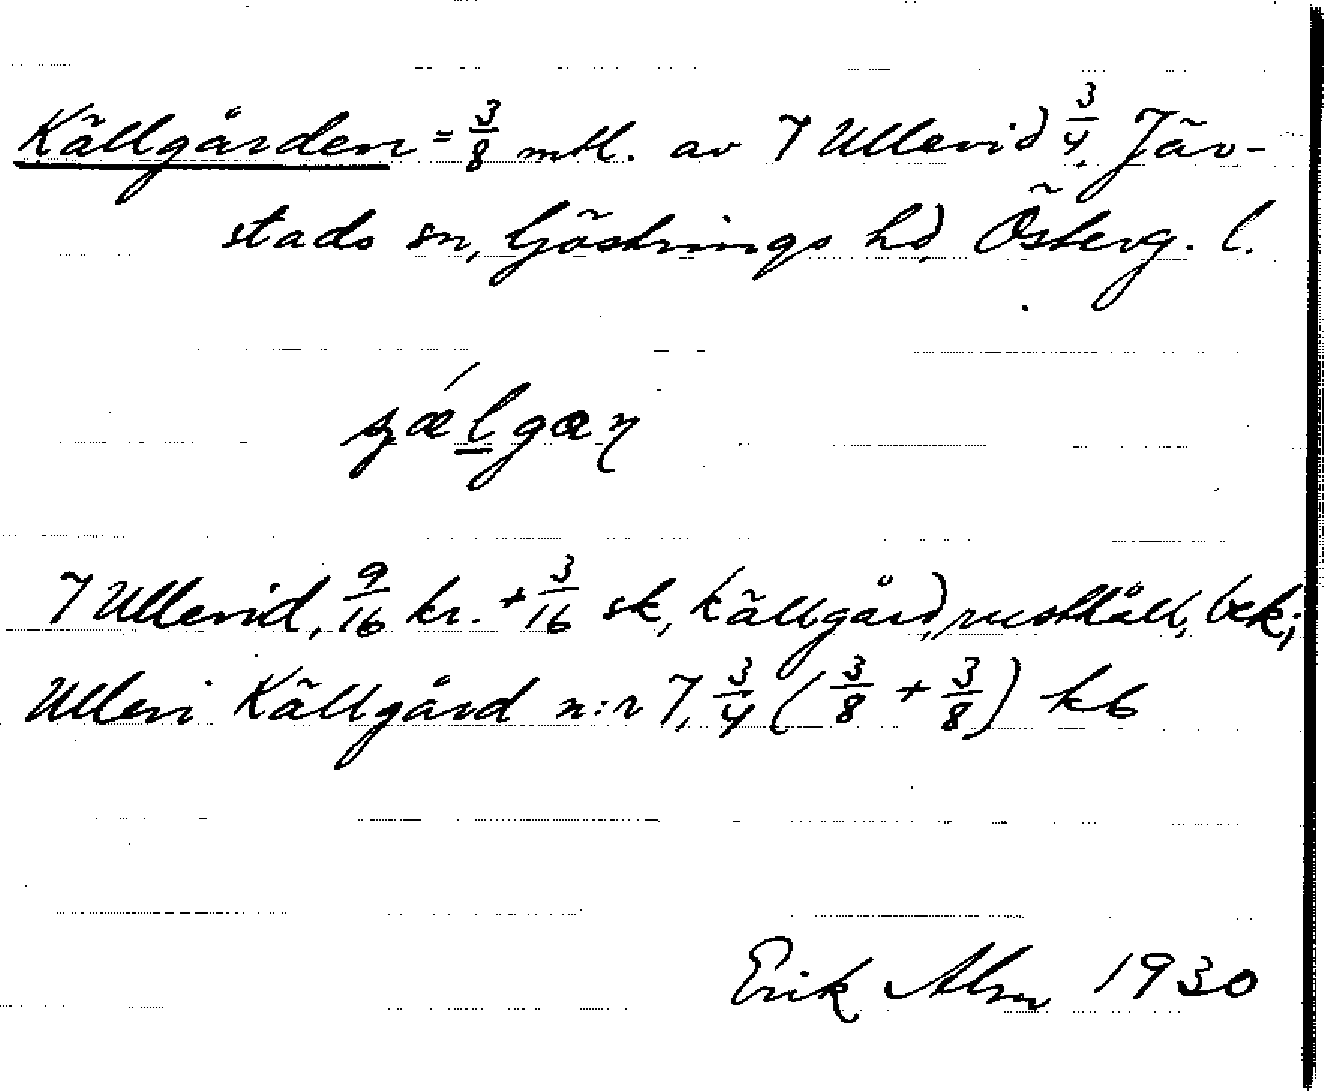 Källgården = 3/8 mtl. av 7 Ullevid 3/4, Järstads sn, Göstrings hd, Österg. l.
7 Ullevid, 9/16 kr. + 3/16 sk, Källgård, rusthåll, bek;
Ullevi Källgård n:r 7, 3/4 (3/8 + 3/8) kb
Erik Alm 1930